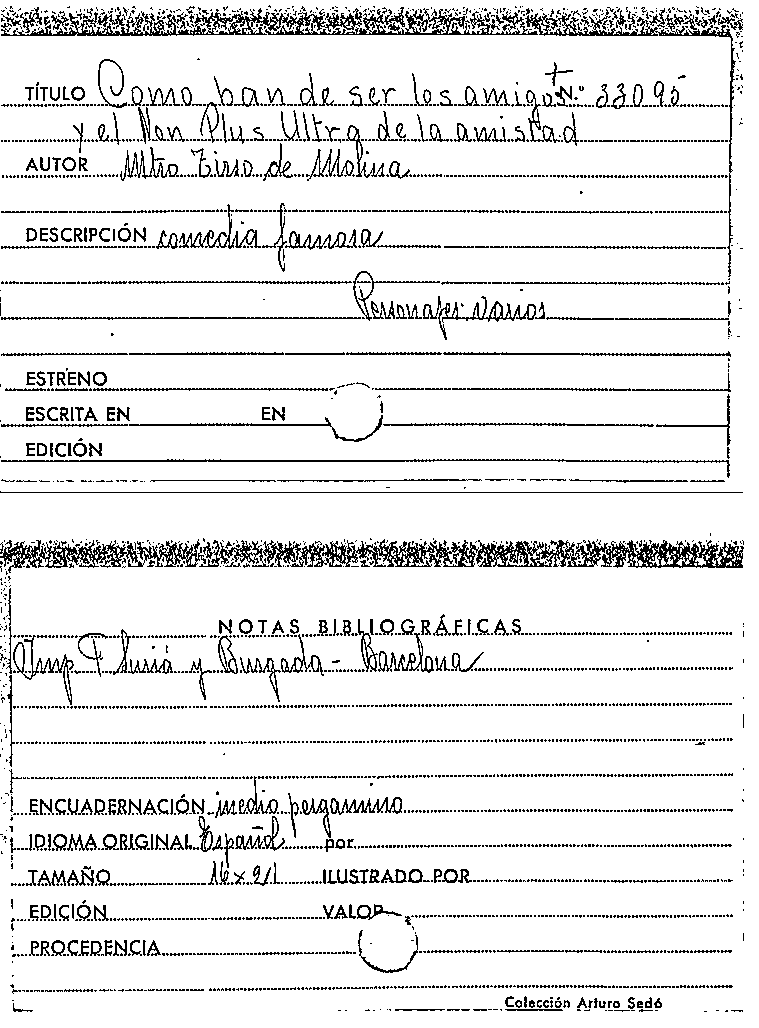 TÍTULO Como han de ser los amigos + N.º 33095
y el Non Plus Ultra de la amistad
AUTOR Mtro Tirso de Molina
DESCRIPCIÓN comedia famosa
Personajes varios
ESTRENO
ESCRITA EN EN
EDICIÓN
NOTAS BIBLIOGRÁFICAS
Imp F Suriá y Burgada - Barcelona
ENCUADERNACIÓN medio pergamino
IDIOMA ORIGINAL Español por
TAMAÑO ILUSTRADO POR
EDICIÓN VALOR
PROCEDENCIA
Colección Arturo Sedó